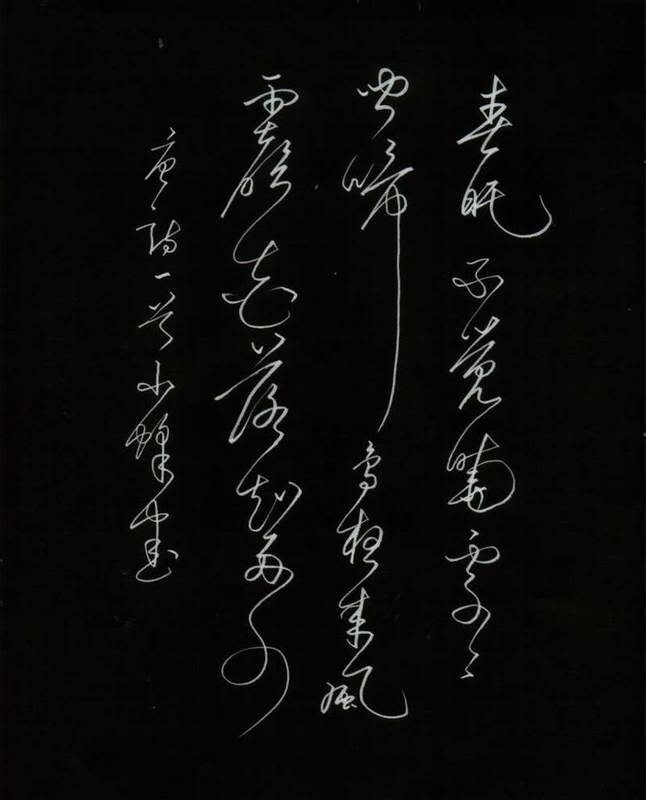 春眠不覺曉處々
聞啼鳥夜來風
雨聲花落知多少
唐詩一首小書